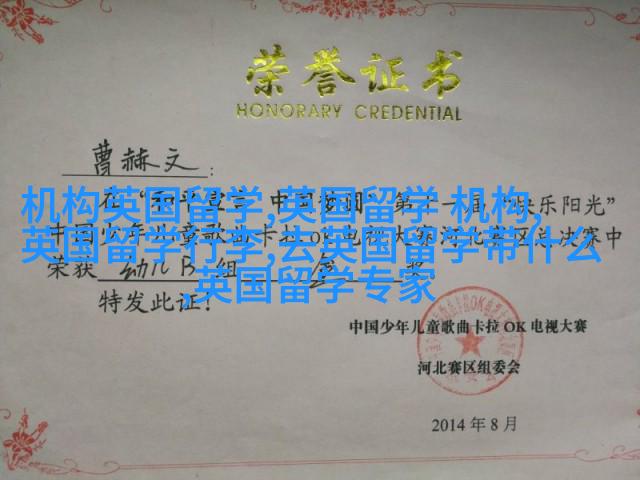 荣誉证书
HONORARY CREDENTIAL
曹赫文：
机构英国留学,英国留学 机构,
英国留学行李,去英国留学带什么
,英国留学专家
在 第十一届 乐阳光”
中国少年儿童歌曲卡拉ok电视大赛河北赛区总决赛中
荣获 幼儿B组 奖
特发此证！
中国少年儿童歌曲卡拉OK电视大赛
河北赛区组委会
2014年8月